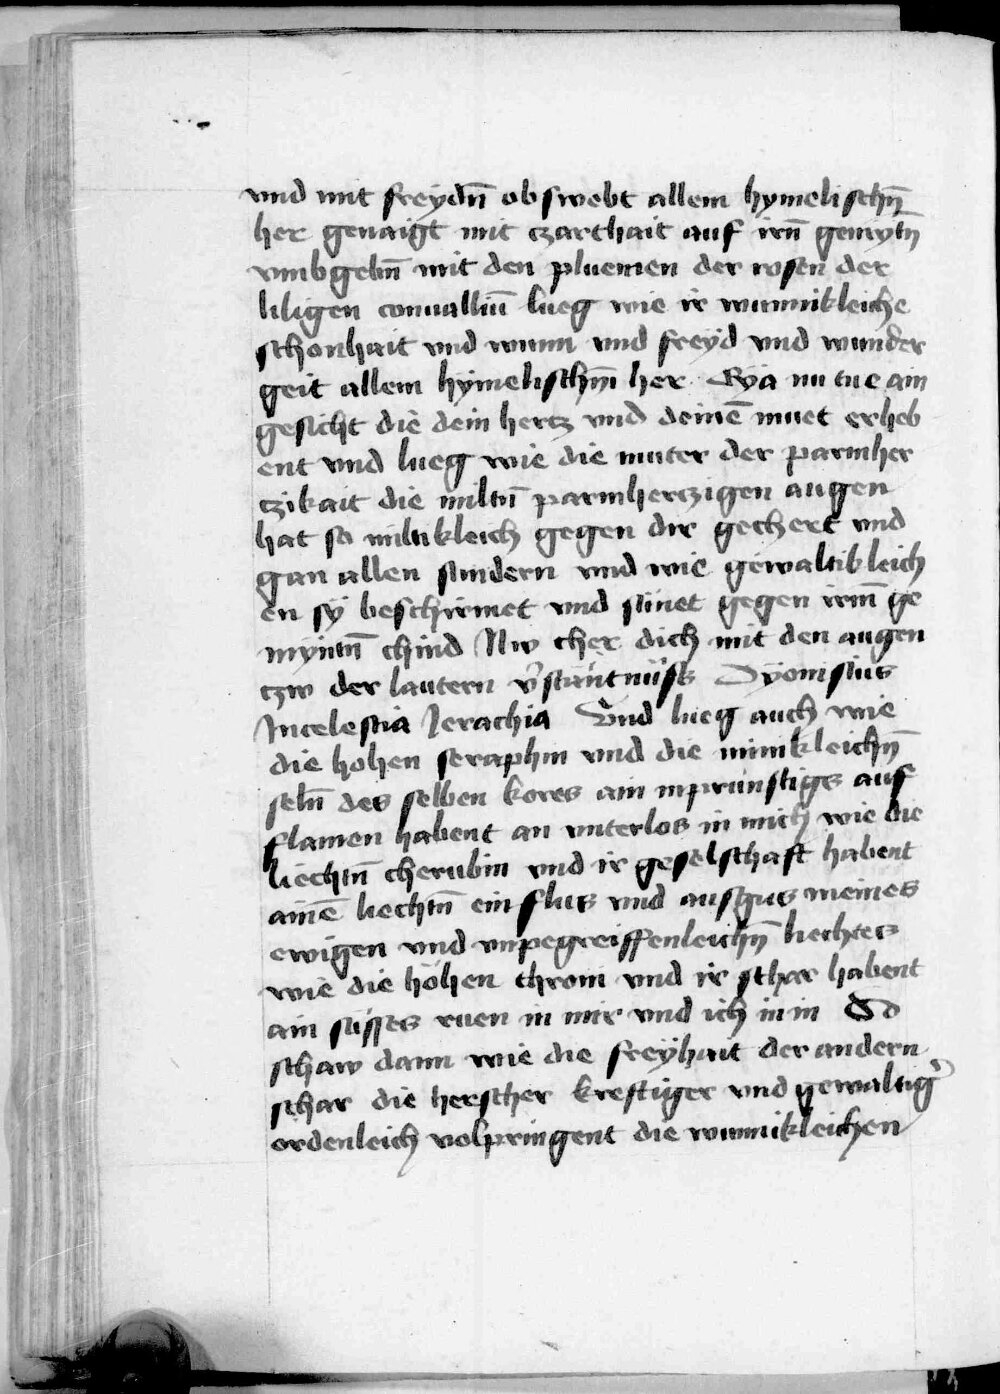 vnd mit freydn̄ ob swebt allem hymelischn̄
her genaigt mit czarthait auf irn̄ gemytn̄
vmbgebn̄ mit den pluemen der rosen der
liligen conuallium̄ lueg wie ir wunnikleiche
schonhait vnd wunn vnd freyd vnd wunder
geit allem hymelischm̄ her Eya nu tue ain
gesicht die dein hertz vnd deinē muet erheb
ent vnd lueg wie die muter der parmher
czikait die miltn̄ parmherczigen augen
hat so miltikleich gegen dir gechert vnd
gan allen sundern vnd wie gewaltikleich
en sy beschirmet vnd sünet gegen irm̄ ge
myntn̄ chind Nw cher dich mit den augen
czw der lautern v̄stantnüss Dyonisius
In celestia Jerachia Vnd lueg auch wie
die hohen seraphin vnd die minikleichn̄
seln̄ des selben kores ain inprünstigs auf
flamen habent an vnterlos in mich wie die
liechtn̄ cherubin vnd ir geselschaft habent
ainē liechtn̄ ein flus vnd ausgus meines
ewigen vnd vnpegreiffenleichn̄ liechtes
wie die höhen throni vnd ir schar habent
ain süsses ruen in mir vnd ich in in So
schaw dann wie die freyhait der andern
schar die herscher kreftiger vnd gewaltig̕
ordenleich volpringent die wunnikleichen